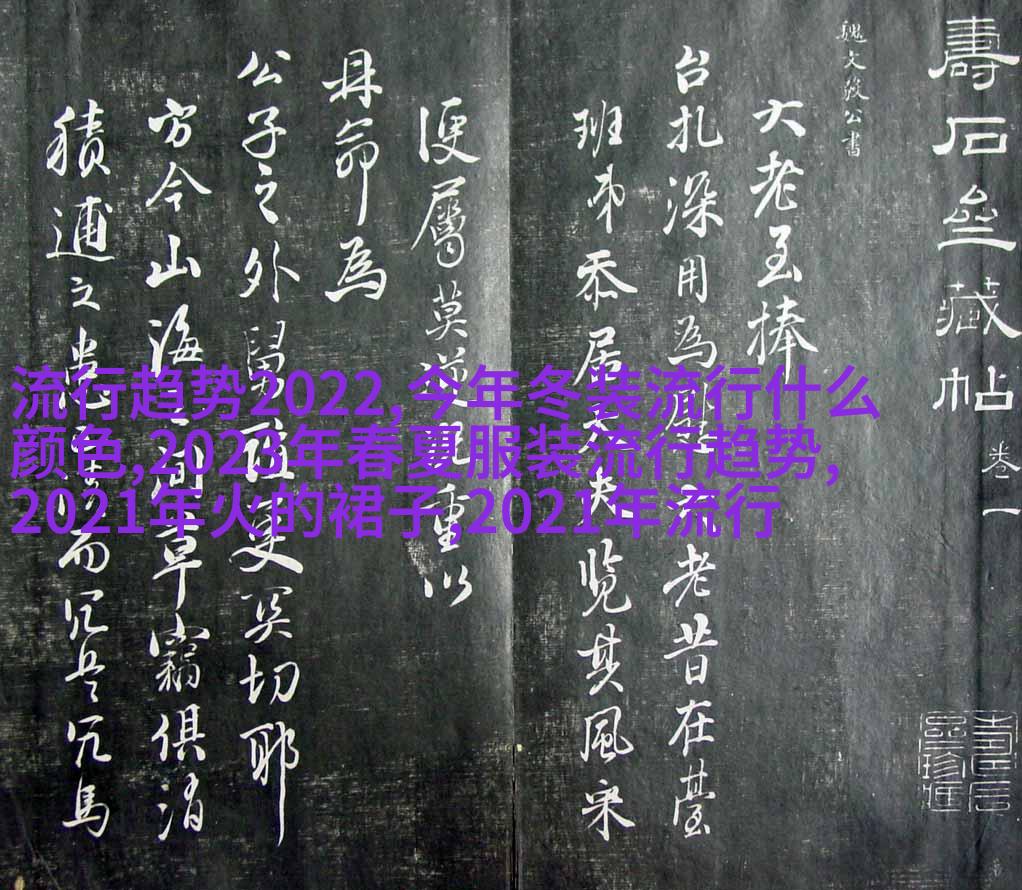 壽石亝藏帖
卷一
魏文毅公書
大老至捧
台扎深用為 老昔在臺
班 忝居 夫 覽其風采
便屬莫 重以
命為
公子之外舅 更奚切耶
方今山海 間草竊俱消
積逋之 而冗兵冗馬
流行趋势2022,今年冬装流行什么
颜色,2023年春夏服装流行趋势,
2021年火的裙子,2021年流行